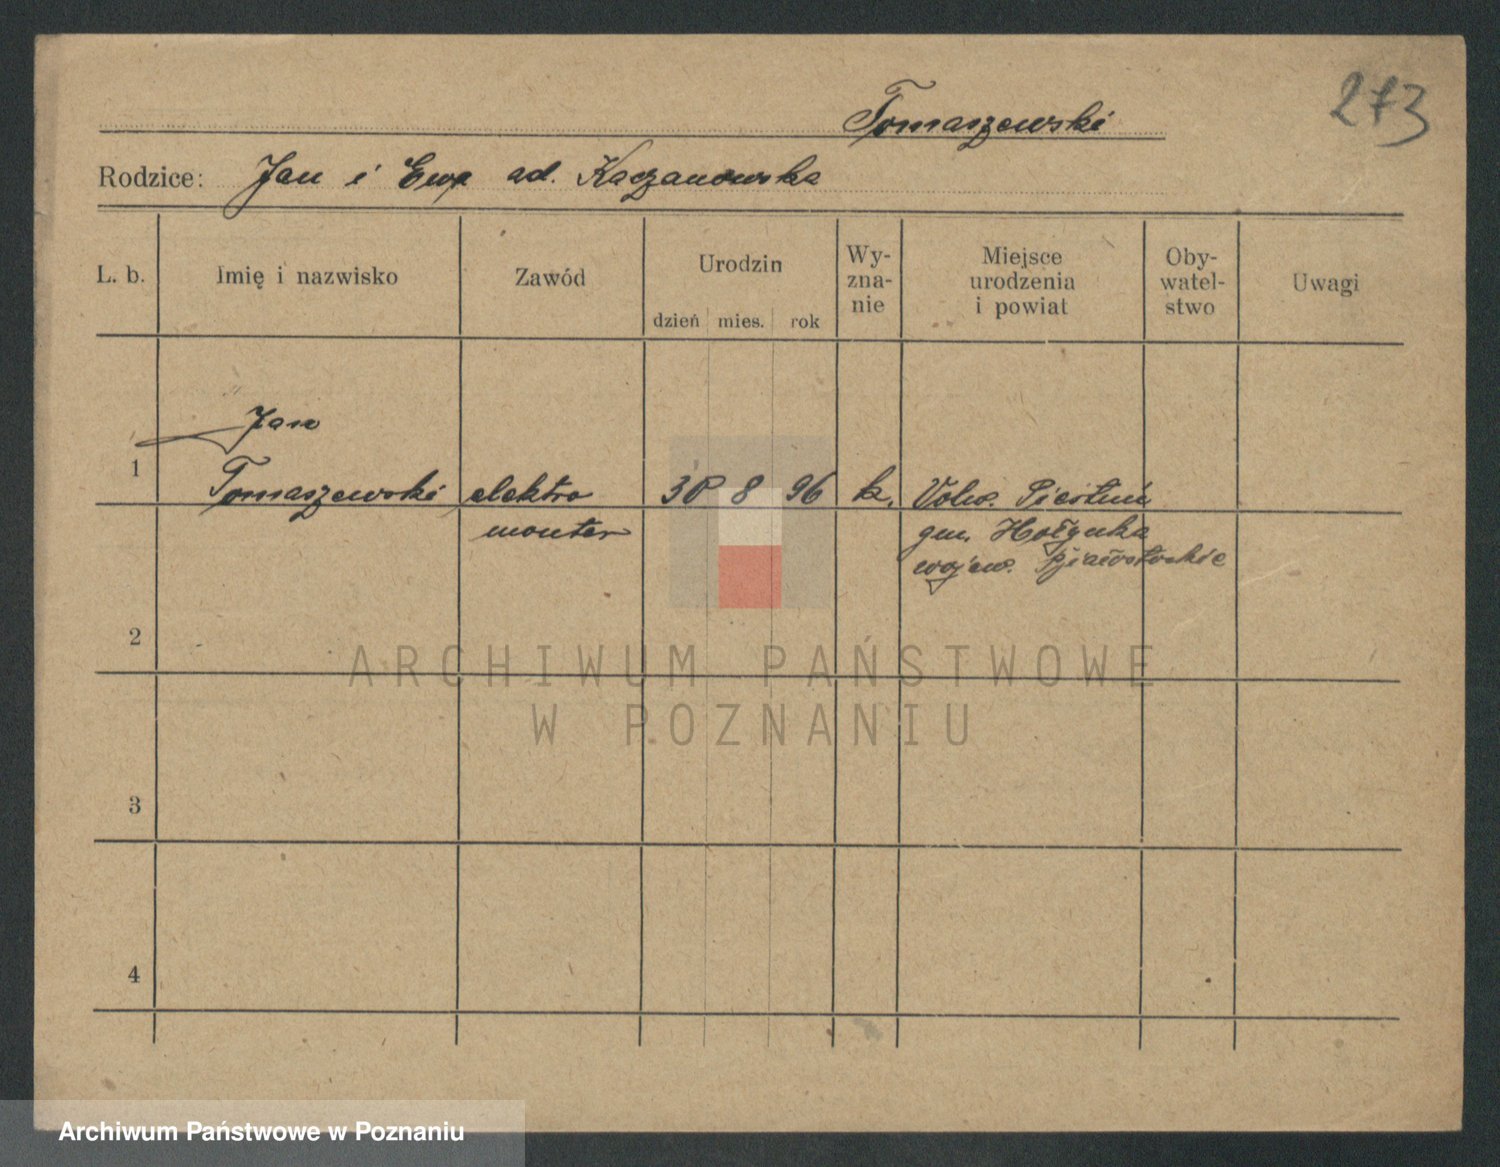 273
Tomaszewski
Rodzice: Jan i Ewa ad. Kaczanowska
L. b.
Imię i nazwisko
Zawód
Urodzin
dzień mies. rok
Wy-
zna-
nie
Miejsce
urodzenia
i powiat
Oby-
watel-
stwo
Uwagi
Jan
1 Tomaszewski elektro 30 8 96 k.
monter gm. Hołynka
wojew. Białostockie
2
3
4
ARCHIWUM PAŃSTWOWE
W POZNANIU
Archiwum Państwowe w Poznaniu